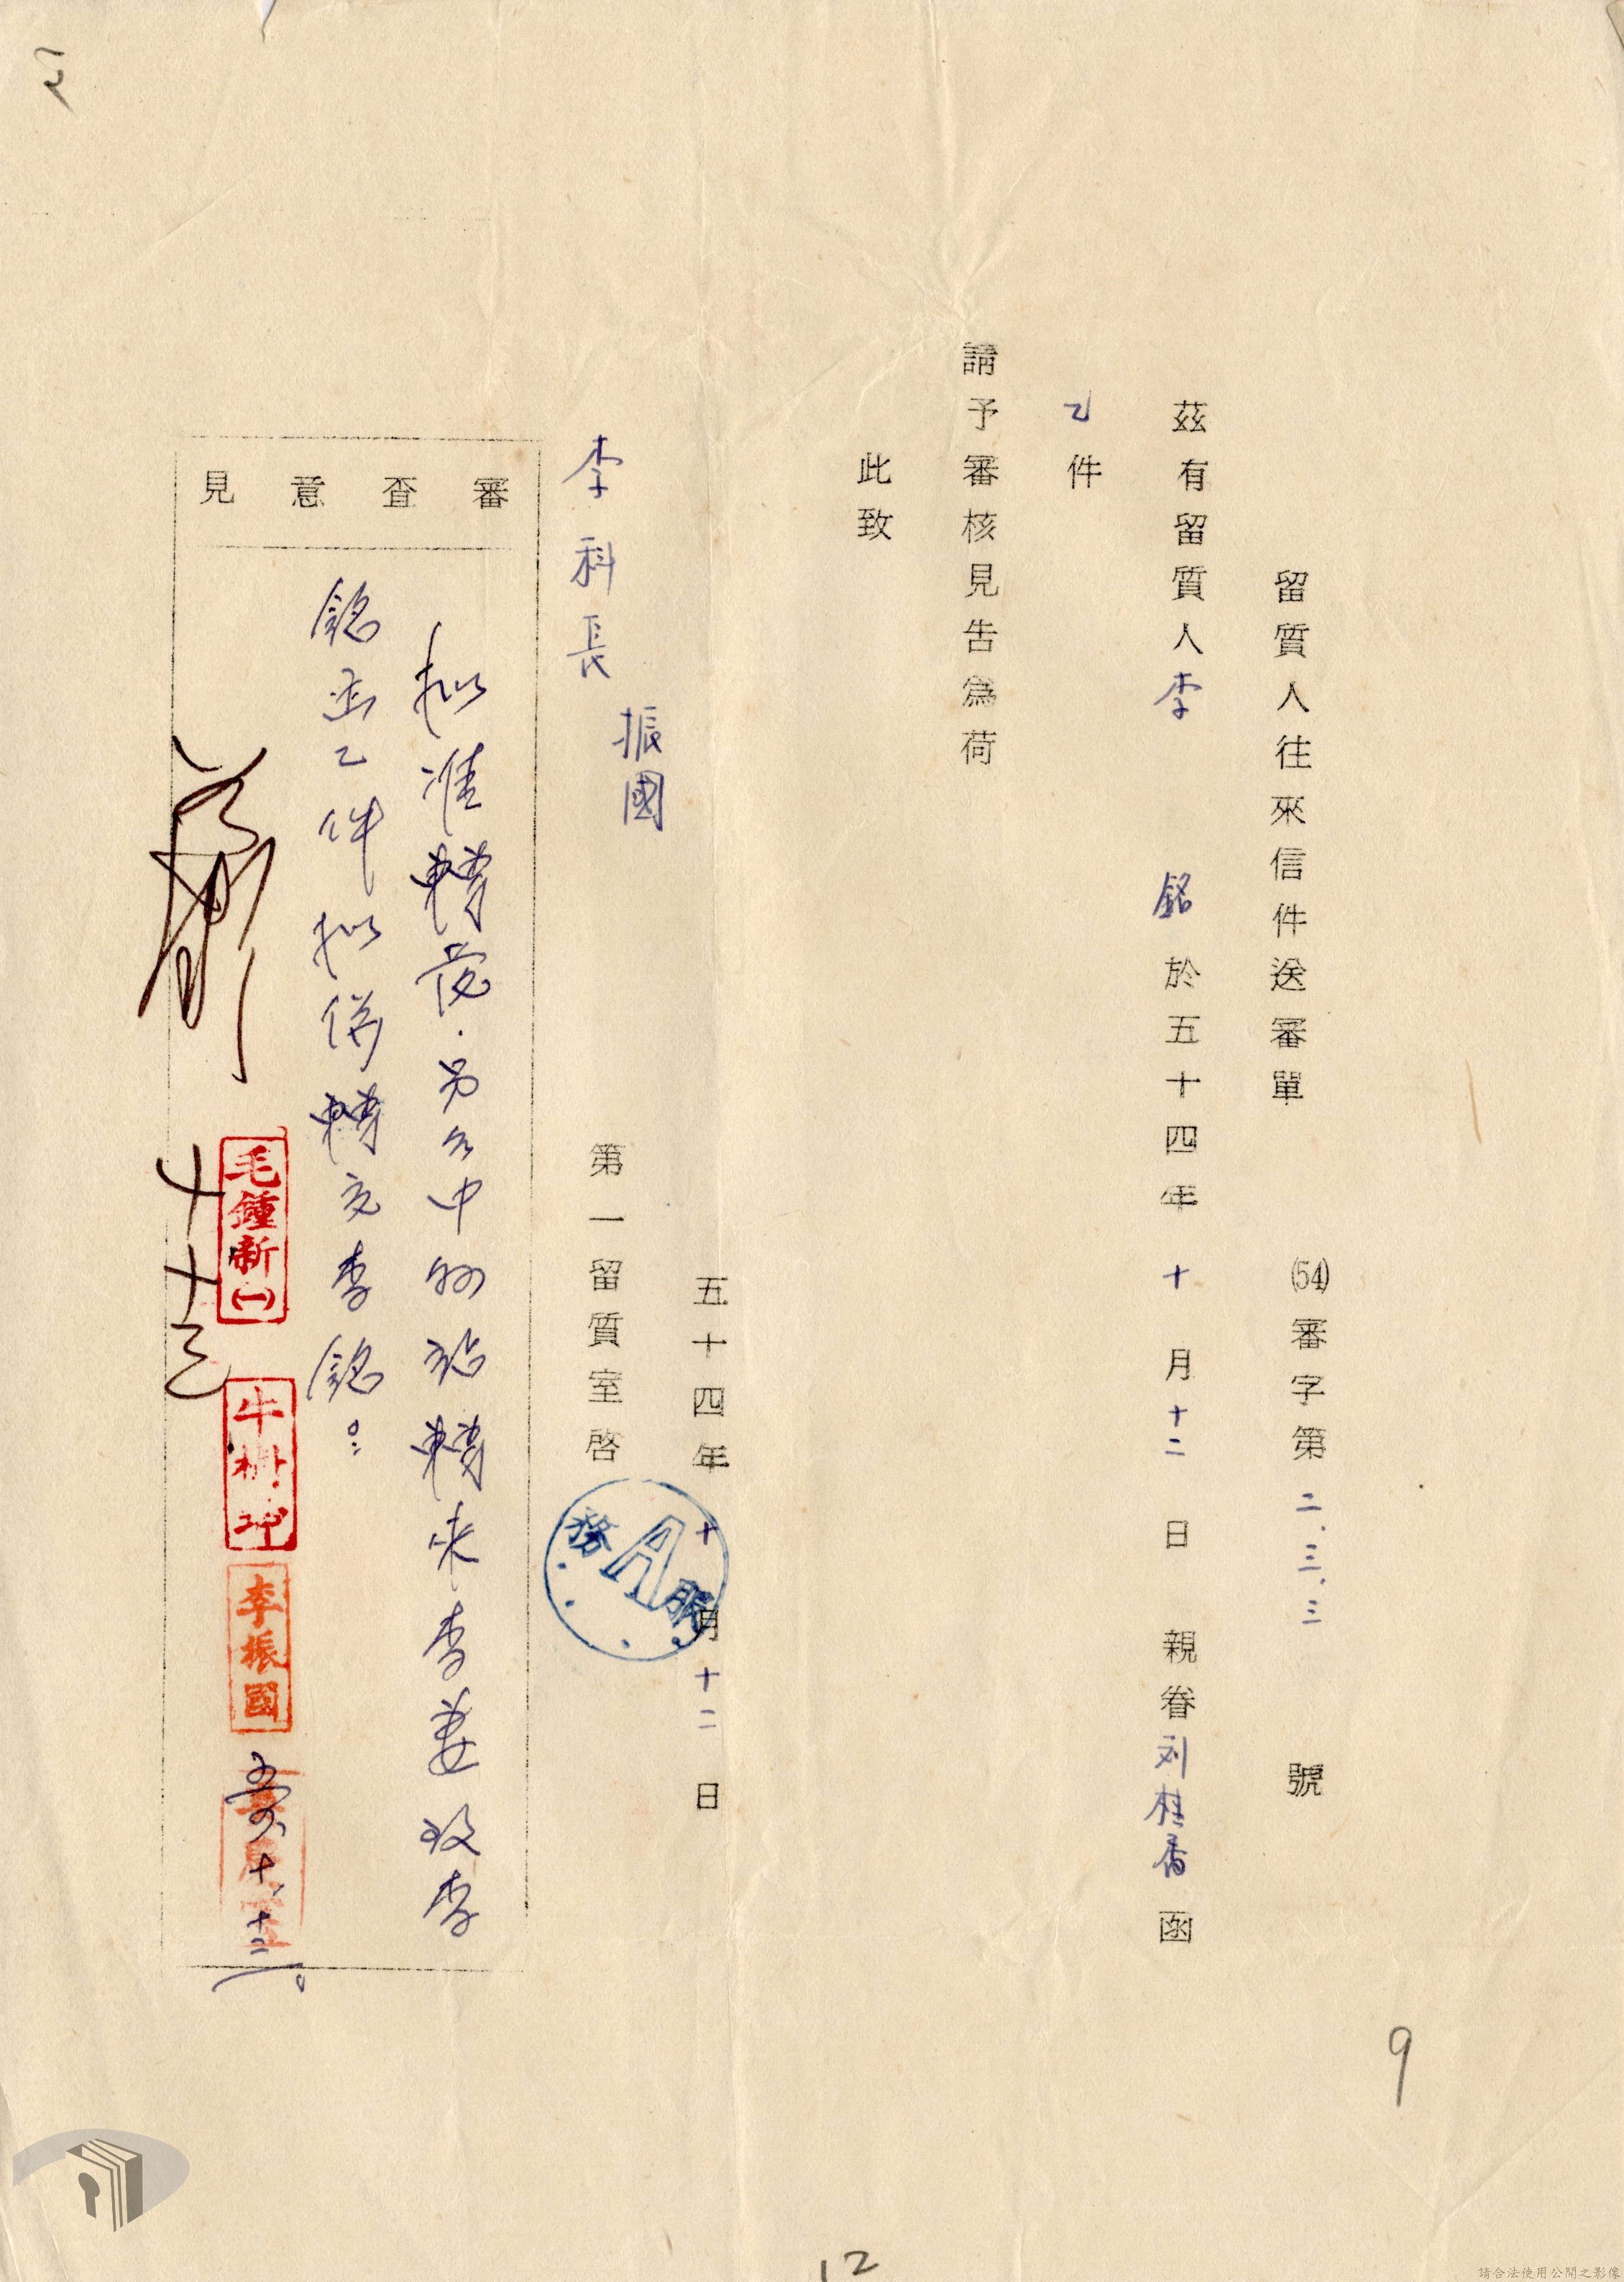 留質人往來信件送審單
(54)審字第二.三.三號
茲有留質人李 銘於五十四年十月十二日 親眷刘桂香函
乙件
請予審核見告為荷
此致
李科長振國
第一留質室啓
五十四年十月十二日
服A務
審查意見
拟准轉發.另台中郵站轉来李姜致李
銘函乙件拟併轉交李銘。
十
十三
毛鍾新(一)
牛樹坤
李振國
十.十三.
9
12
請合法使用公開之影像